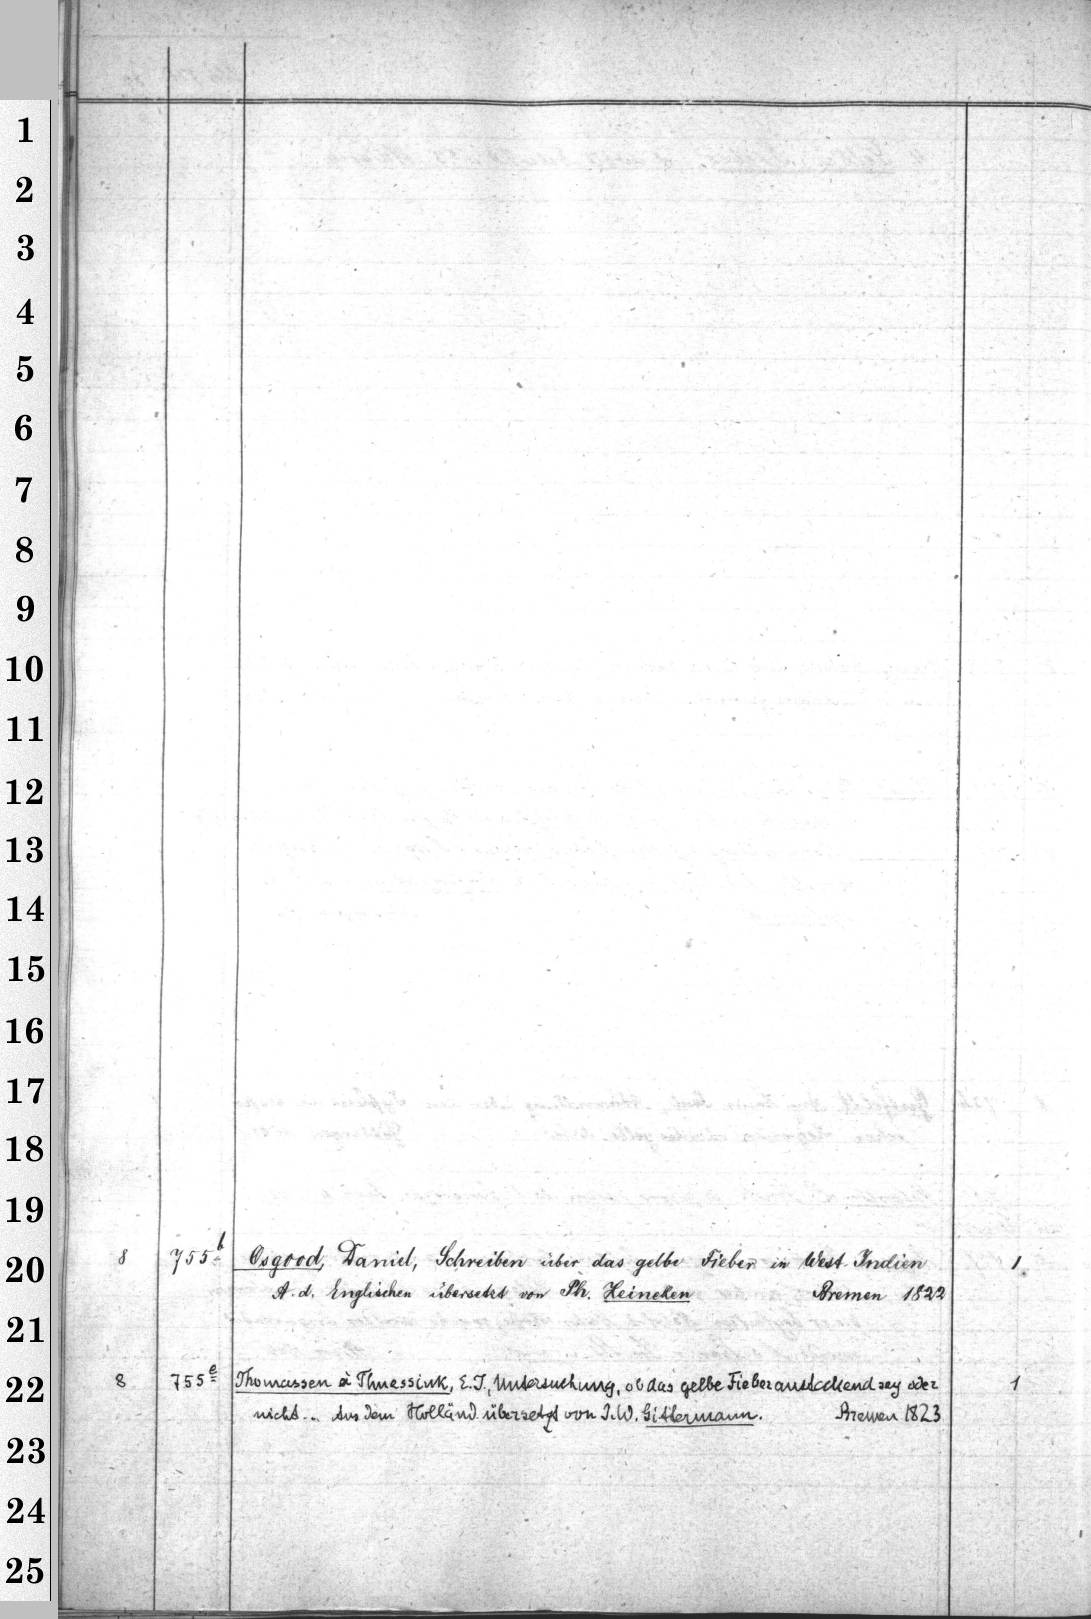 1
2
3
4
5
6
7
8
9
10
11
12
13
14
15
16
17
18
19
20
21
22
23
24
25
8 755b Osgood, Daniel, Schreiben über das gelbe Fieber in West-Indien 1
A. d. Englischen übersetzt von Ph. Heineken Bremen 1822
8 755e Thomassen à Thuessink, E.J., Untersuchung, ob das gelbe Fieber ansteckend sey oder 1
nicht... Aus dem Holländ übersetzt von J.W. Gittermann. Bremen 1823